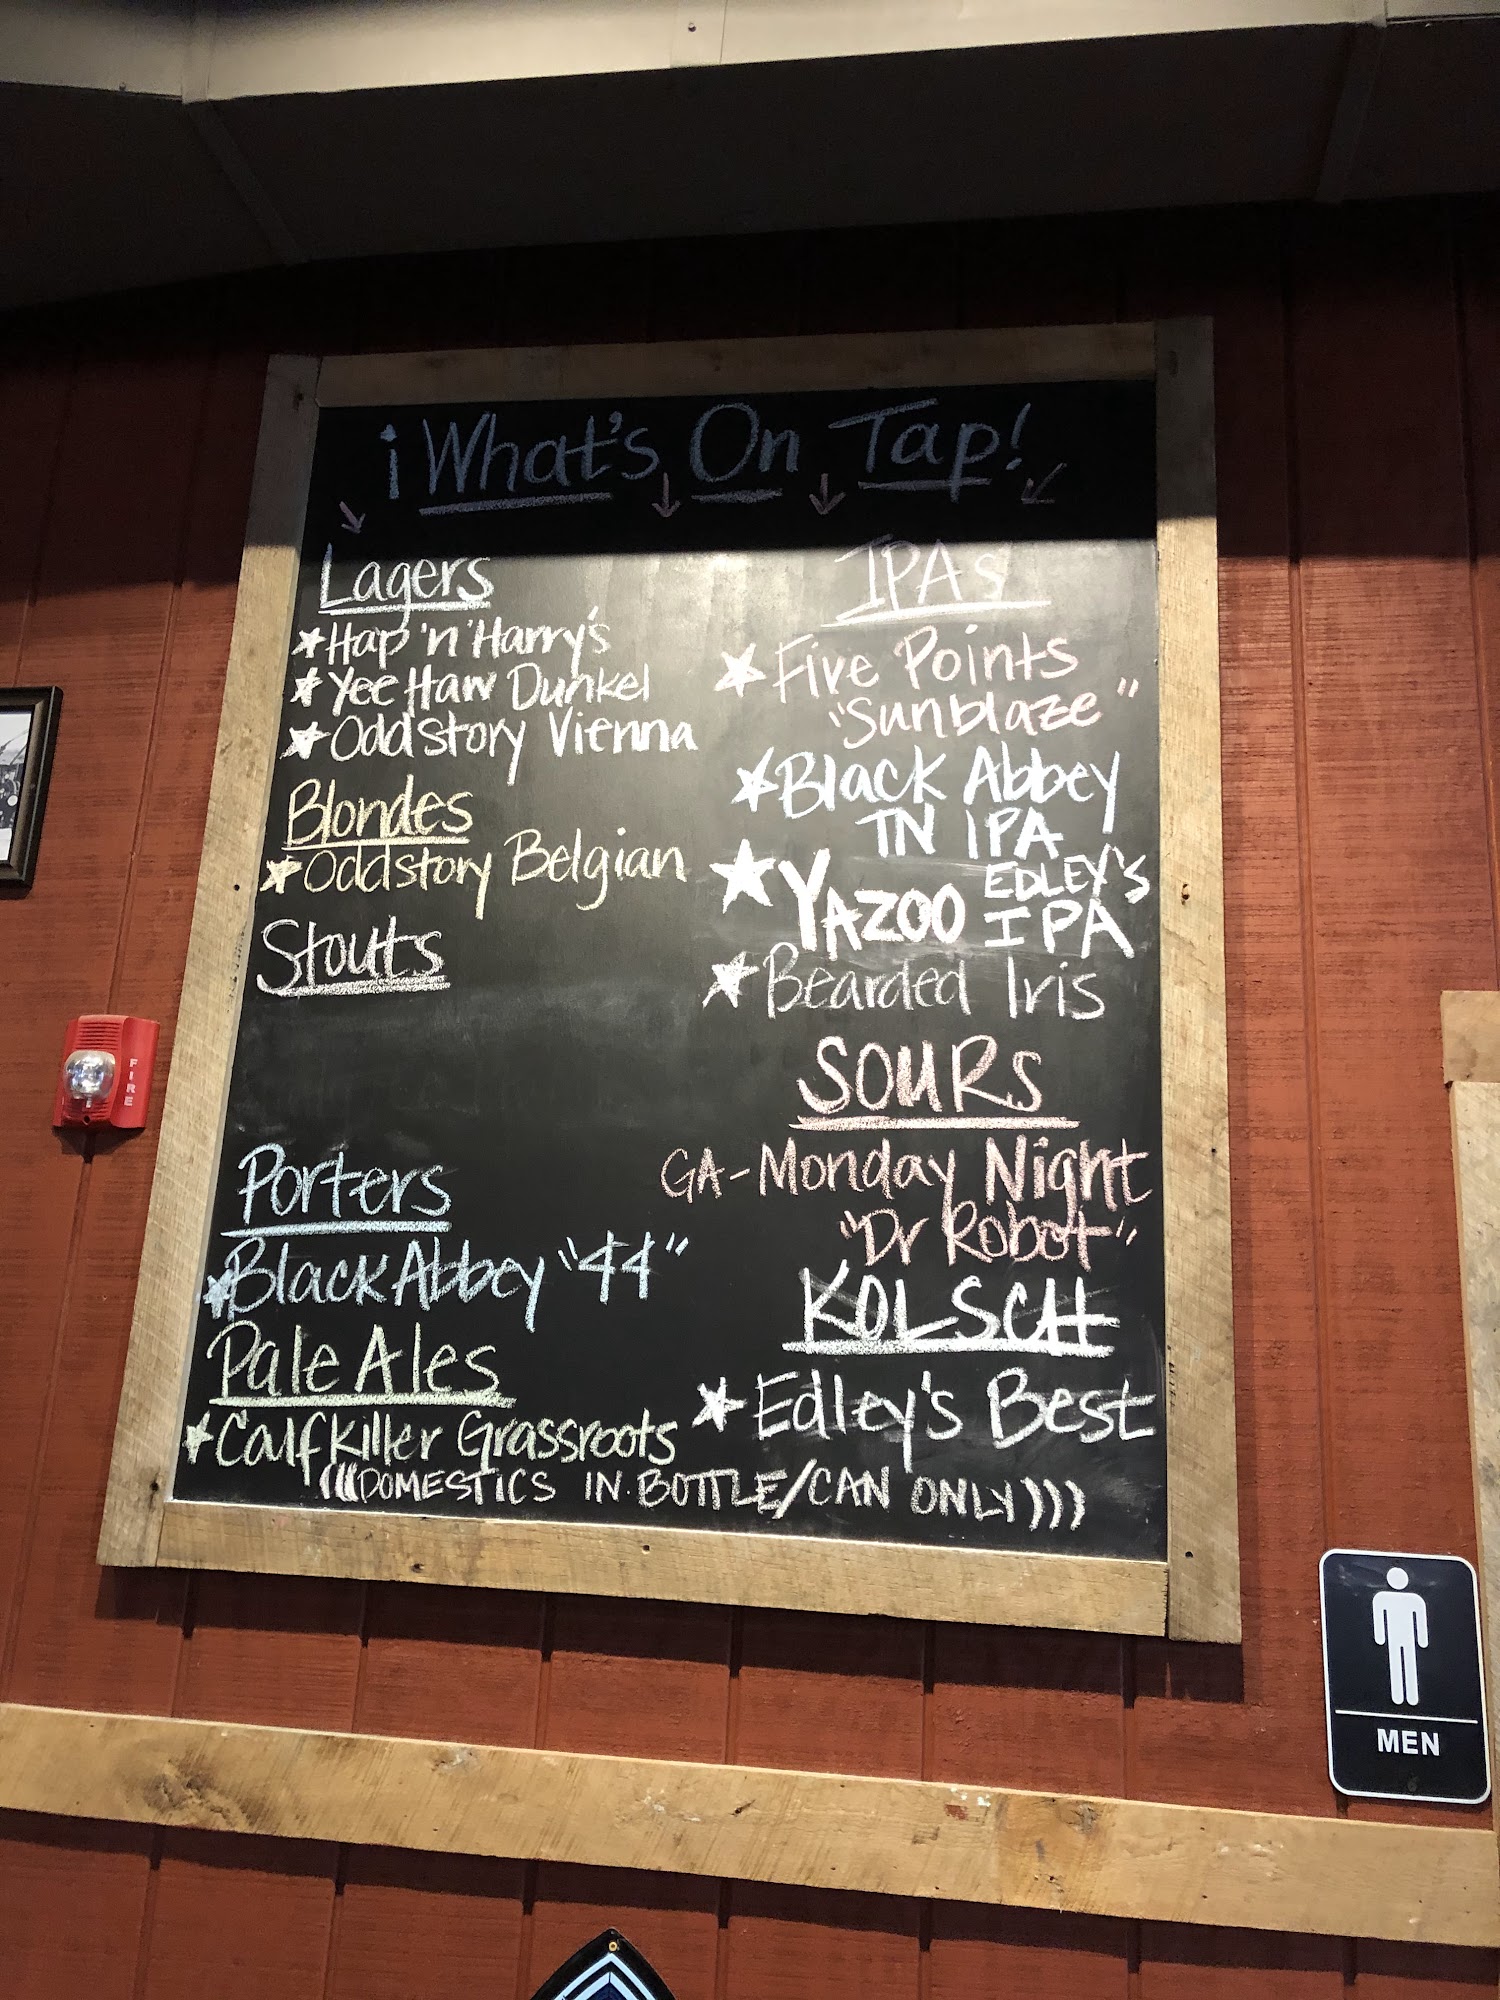 ¡What's On Tap!
Lagers
Hap 'n' Harry's
Yee Haw Dunkel
Oddstory Vienna
Blondes
Oddstory Belgian
Stouts
Porters
Black Abbey "44"
Pale Ales
Calfkiller Grassroots
IPAs
Five Points
"Sunblaze"
Black Abbey
TN IPA
YAZOO EDLEY'S
IPA
Bearded Iris
SOURS
GA-Monday Night
"Dr Robot"
KOLSCH
Edley's Best
(((DOMESTICS IN BOTTLE/CAN ONLY)))
FIRE
MEN